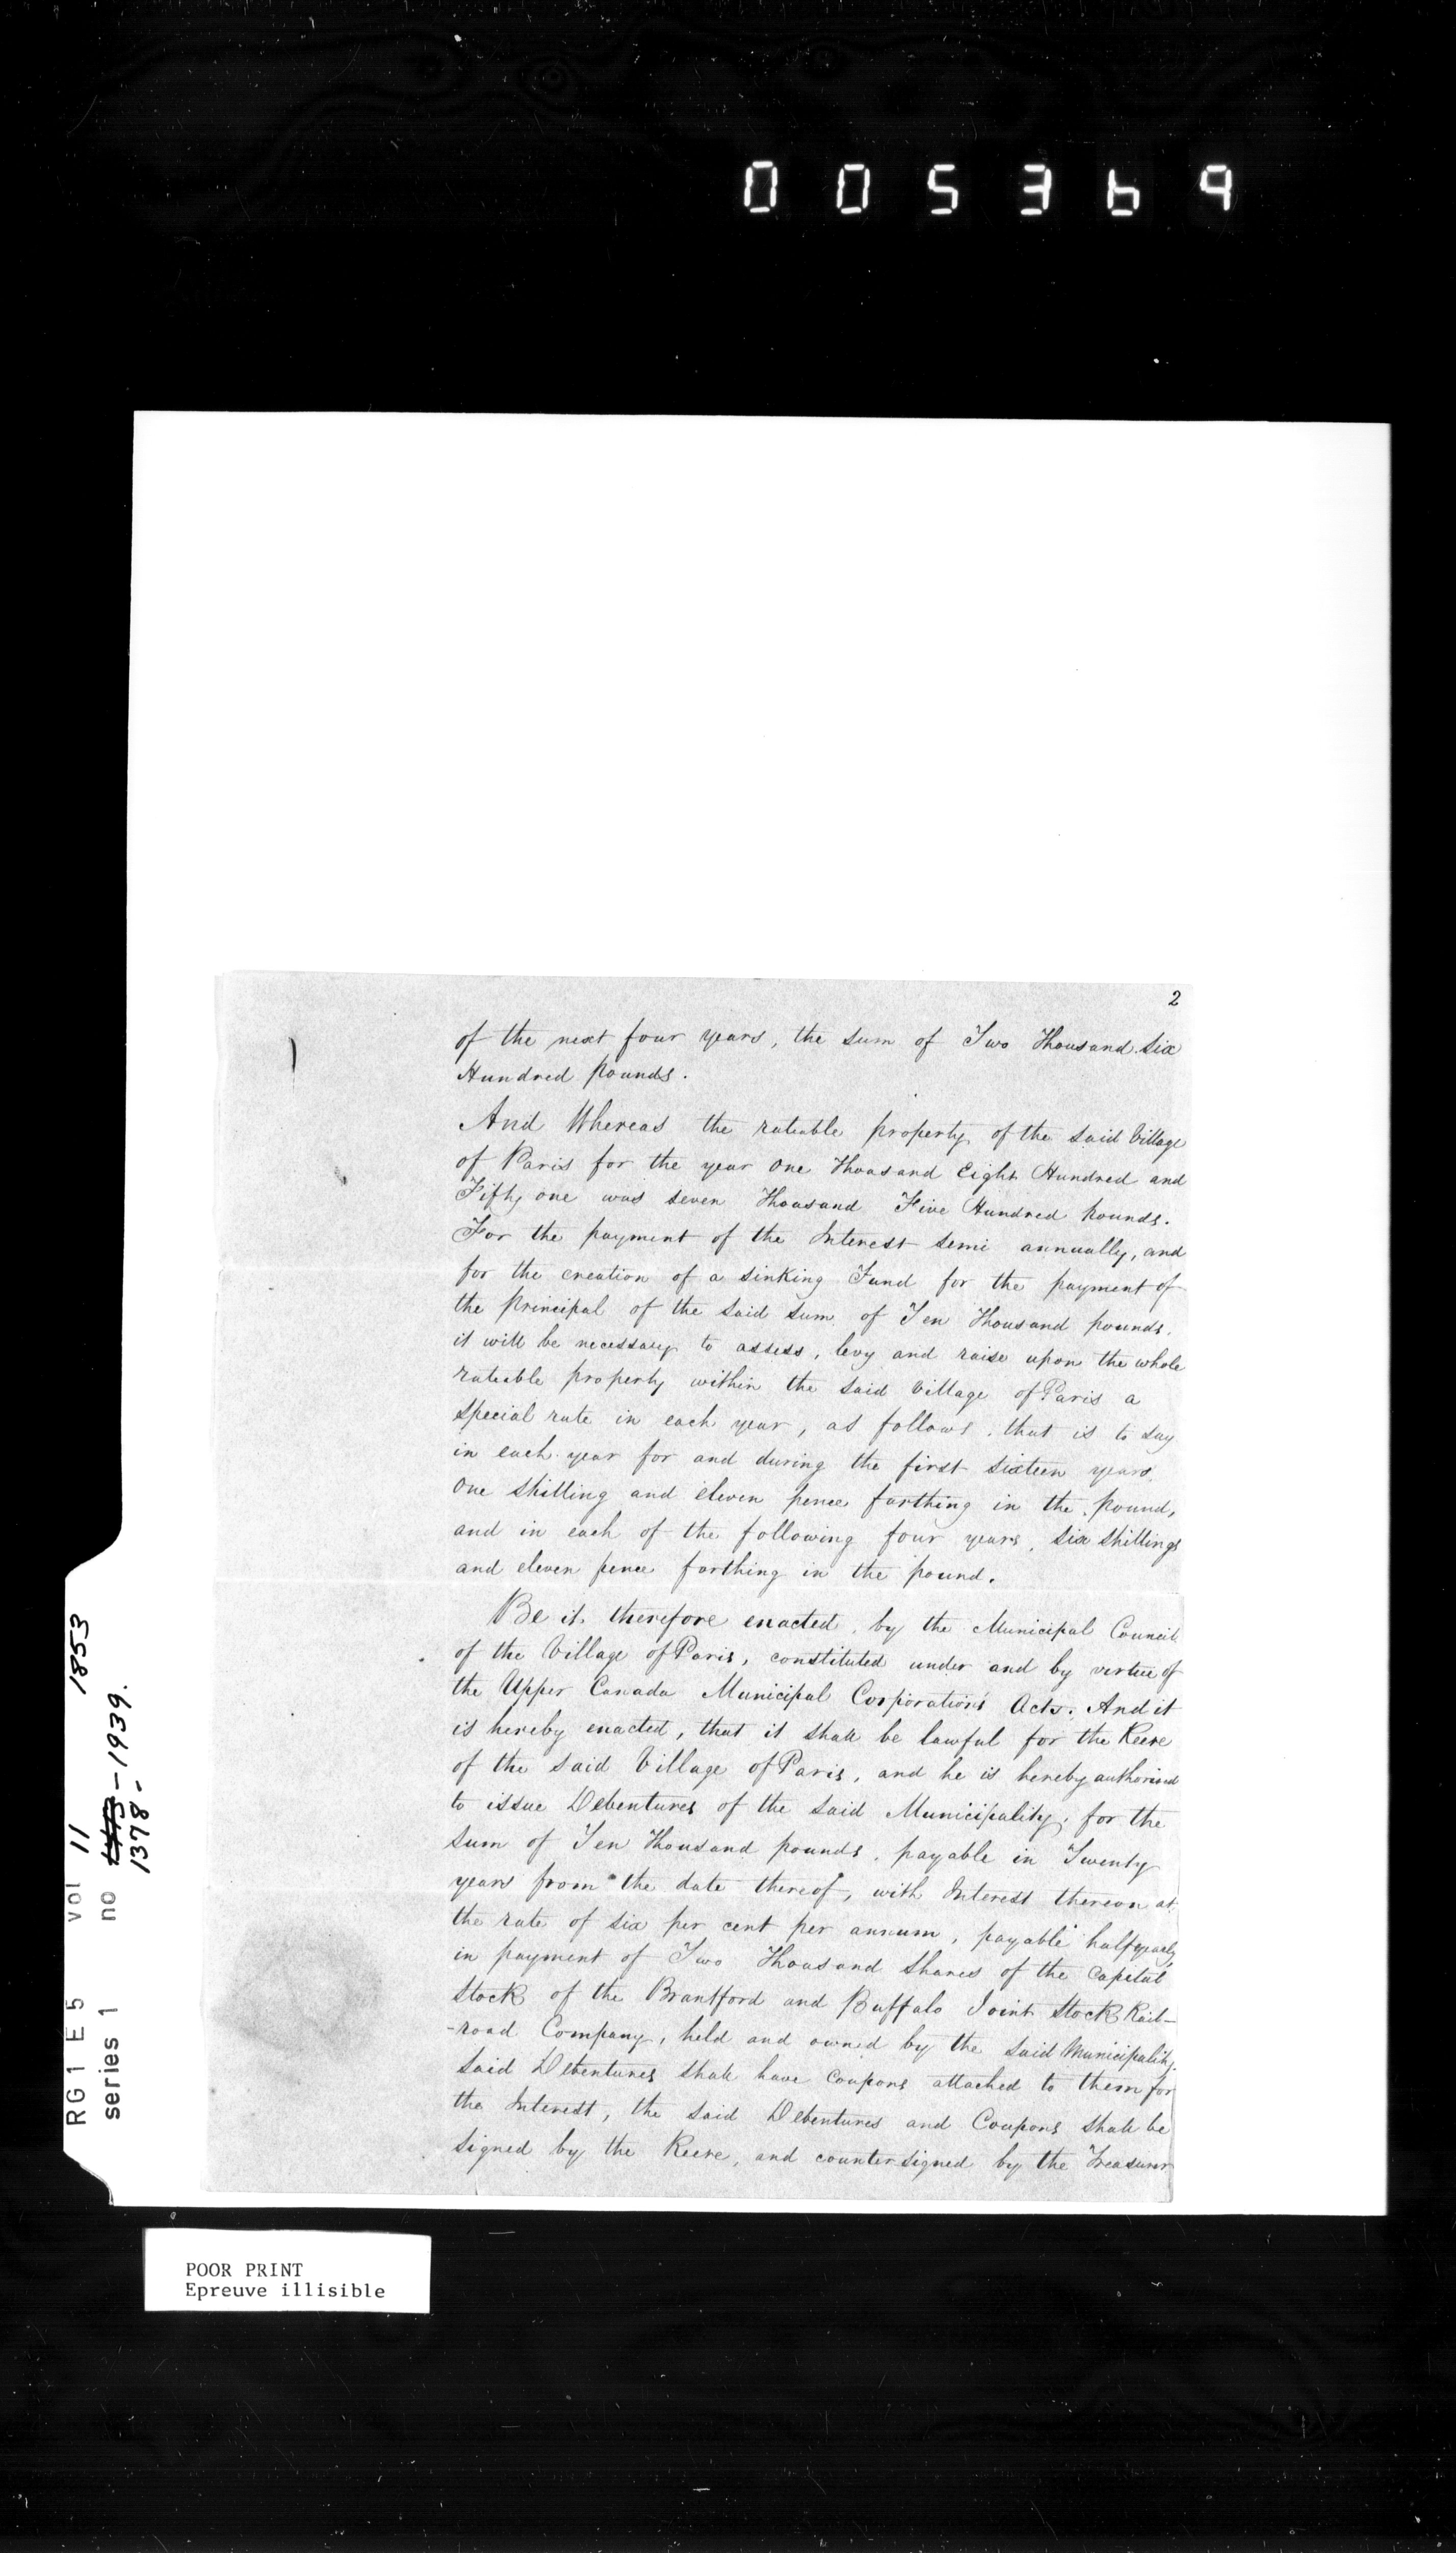 005369
2
of the next four years, the sum of Two Thousand Six
Hundred pounds.
And Whereas the rateable property of the said Village
of Paris for the year One Thousand Eight Hundred and
Fifty one was seven Thousand Five Hundred pounds.
For the payment of the Interest semi annually, and
for the creation of a sinking Fund for the payment of
the principal of the said sum of Ten Thousand pounds,
it will be necessary to assess, levy and raise upon the whole
rateable property within the said Village of Paris a
special rate in each year, as follows, that is to say
in each year for and during the first sixteen years,
One shilling and eleven pence farthing in the pound,
and in each of the following four years, six shillings
and eleven pence farthing in the pound.
Be it therefore enacted, by the Municipal Council
of the Village of Paris, constituted under and by virtue of
the Upper Canada Municipal Corporation's Acts. And it
is hereby enacted, that it shall be lawful for the Reeve
of the said Village of Paris, and he is hereby authorised
to issue Debentures of the said Municipality, for the
sum of Ten Thousand pounds, payable in Twenty
years from the date thereof, with Interest thereon at
the rate of six per cent per annum, payable half yearly
in payment of Two Thousand Shares of the Capital
Stock of the Brantford and Buffalo Joint Stock Rail-
-road Company, held and owned by the said Municipality.
Said Debentures shall have Coupons attached to them for
the Interest, the said Debentures and Coupons shall be
signed by the Reeve, and countersigned by the Treasurer
RG1 E5 vol 11 1853
series 1 no 1378-1939.
POOR PRINT
Epreuve illisible